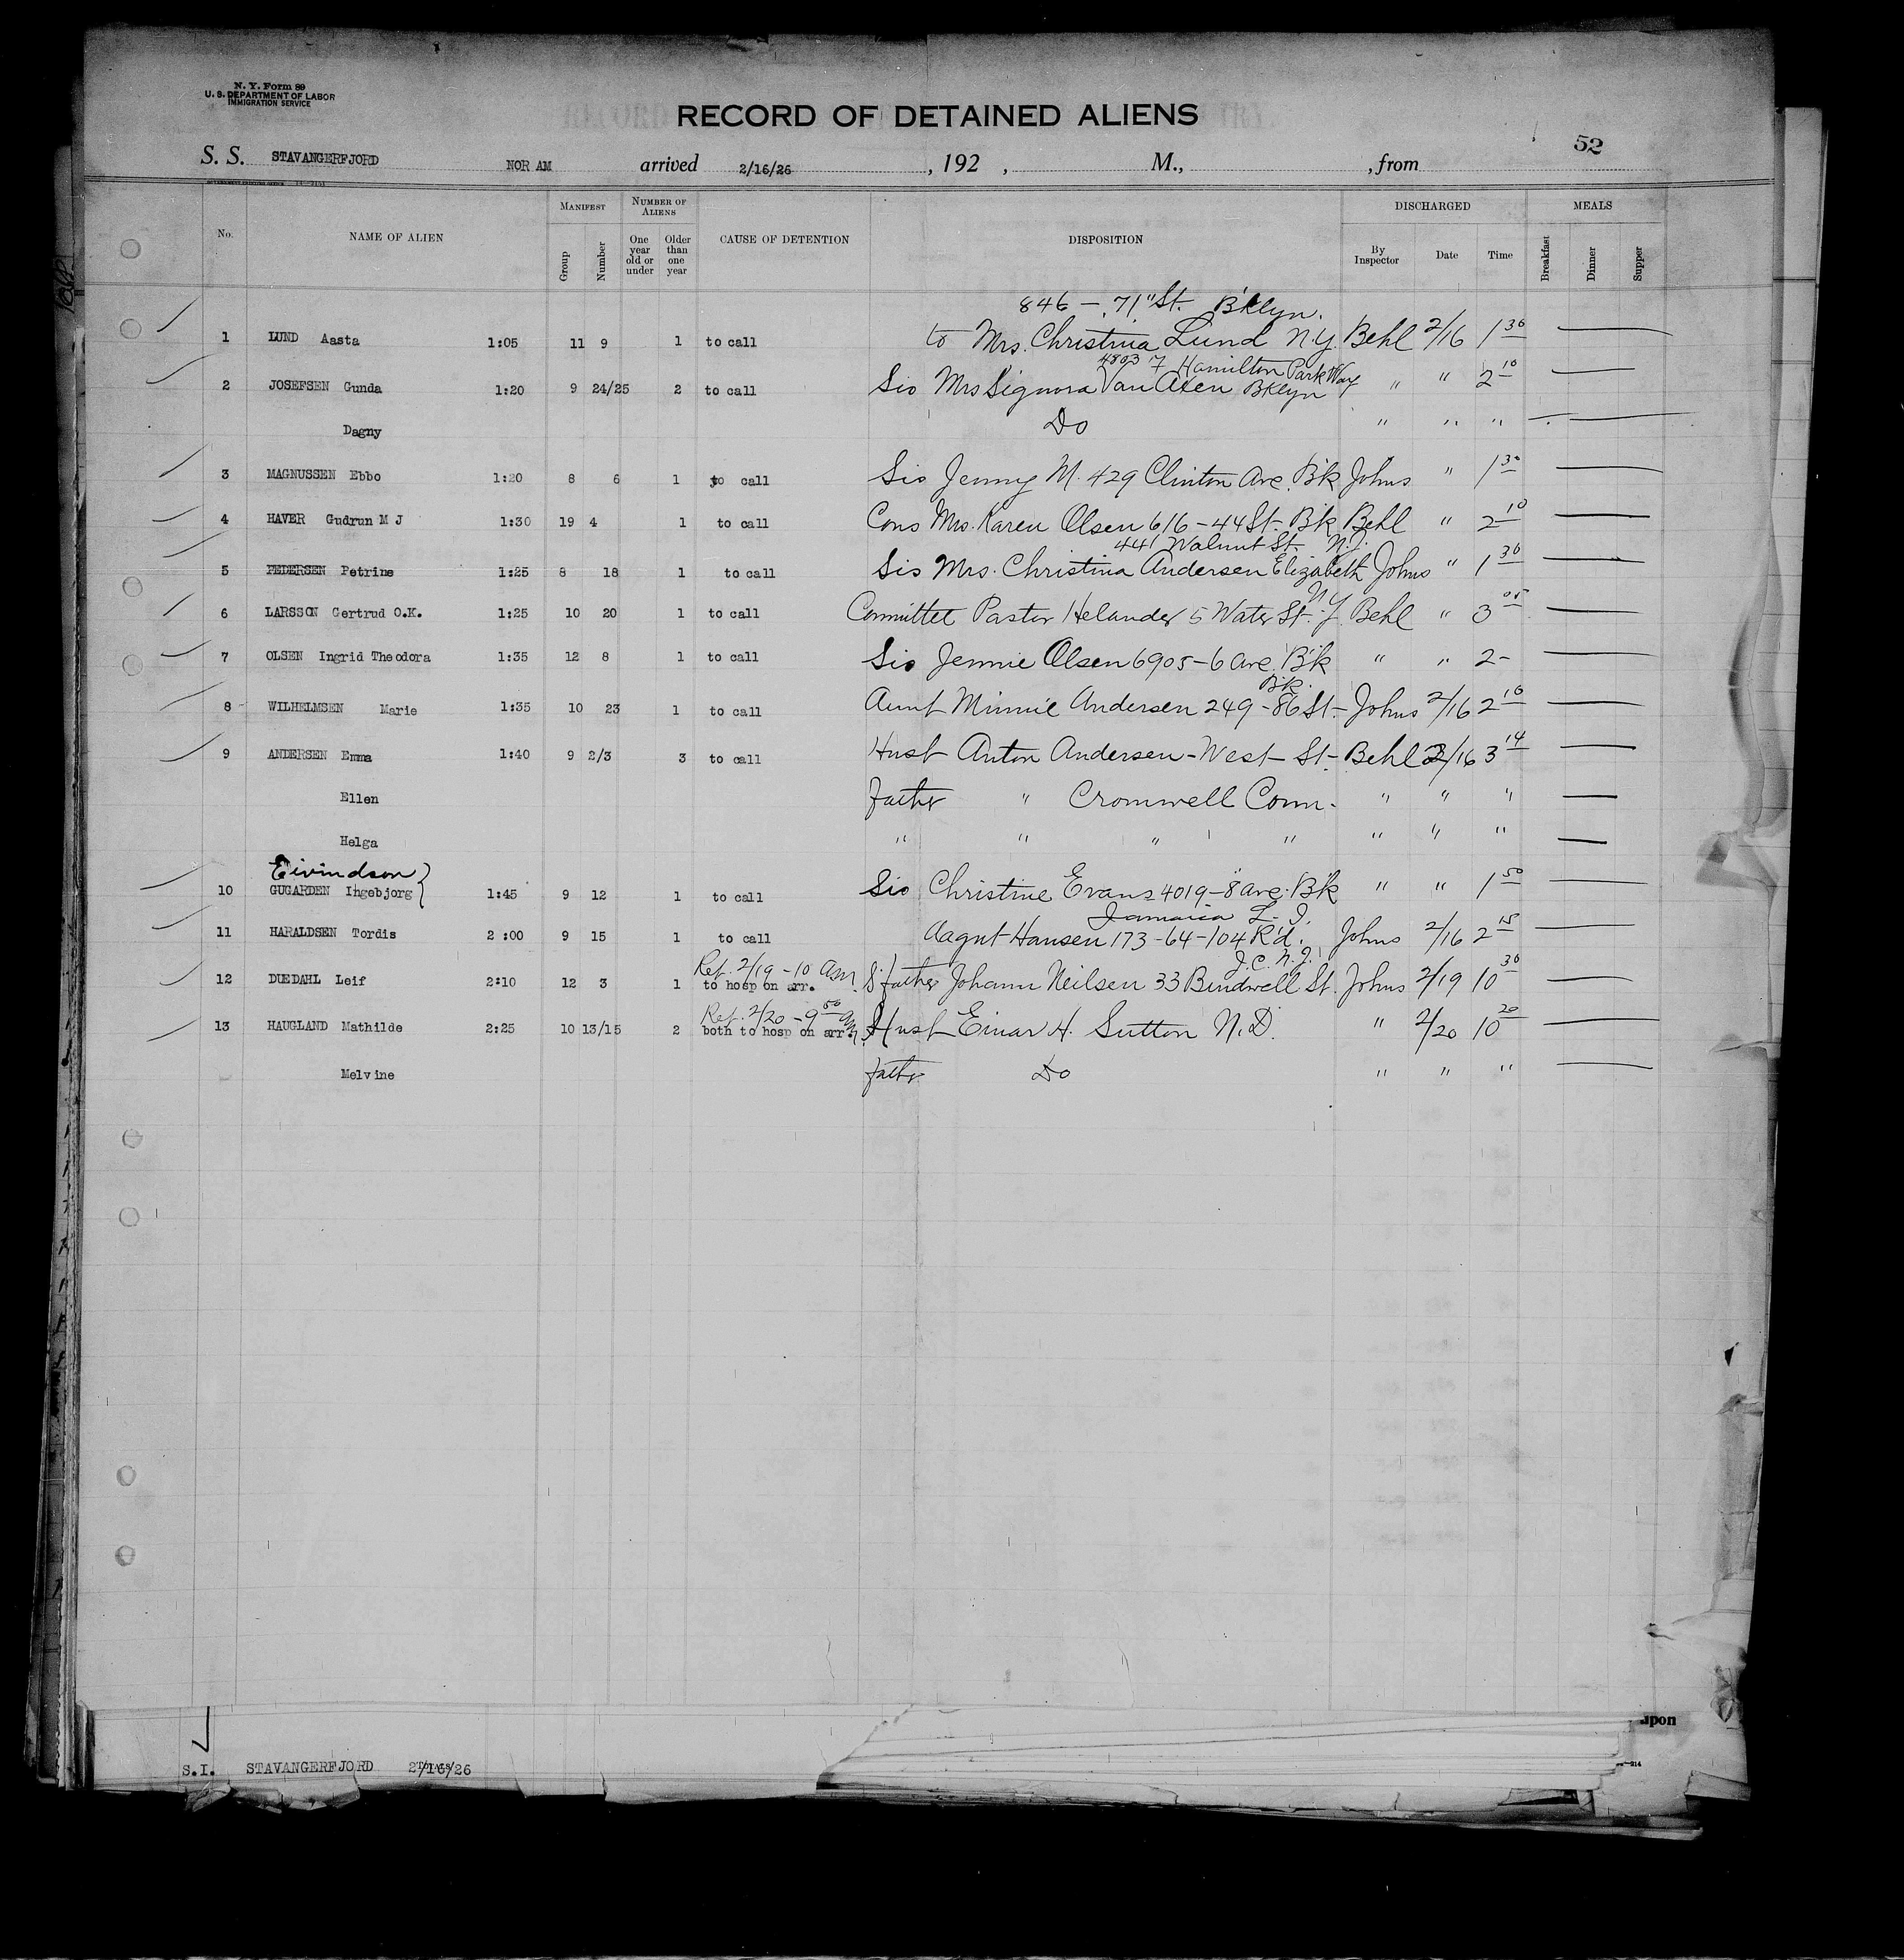 N. Y. Form 89
U. S. DEPARTMENT OF LABOR
IMMIGRATION SERVICE
RECORD OF DETAINED ALIENS
52
S. S. STAVANGERFJORD NOR AM arrived 2/16/26 , 192 , M., , from
No. NAME OF ALIEN MANIFEST Group Number NUMBER OF ALIENS One year old or under Older than one year CAUSE OF DETENTION DISPOSITION DISCHARGED By Inspector Date Time MEALS Breakfast Dinner Supper
846 - 71" St. B'klyn.
1 LUND Aasta 1:05 11 9 1 to call to Mrs. Christina Lund N.Y. Behl 2/16 1 30
4803 7 Hamilton Park Way
2 JOSEFSEN Gunda 1:20 9 24/25 2 to call Sis Mrs Signora Van Axen Bklyn " " 2 10
Dagny Do " " "
3 MAGNUSSEN Ebbo 1:20 8 6 1 to call Sis Jenny M. 429 Clinton Ave. B'k Johns " 1 30
4 HAVER Gudrun M J 1:30 19 4 1 to call Cons Mrs. Karen Olsen 616 - 44 St. B'k Behl " 2 10
441 Walnut St. N.J.
5 PEDERSEN Petrine 1:25 8 18 1 to call Sis Mrs. Christina Andersen Elizabeth Johns " 1 30
6 LARSSON Gertrud O.K. 1:25 10 20 1 to call Committee Pastor Helander 5 Water St. N.Y. Behl " 3 05
7 OLSEN Ingrid Theodora 1:35 12 8 1 to call Sis Jennie Olsen 6905 - 6 Ave. B'k " " 2 -
B'k.
8 WILHELMSEN Marie 1:35 10 23 1 to call Aunt Minnie Andersen 249 - 86 St. - Johns 2/16 2 10
9 ANDERSEN Emma 1:40 9 2/3 3 to call Husb Anton Andersen - West St. - Behl 2/16 3 14
Ellen Father " Cromwell Conn. " " "
Helga " " " " " " "
Eivindson
10 GUGARDEN Ingebjorg 1:45 9 12 1 to call Sis Christine Evans 4019 - 8" Ave. B'k " " 1 50
Jamaica L. I.
11 HARALDSEN Tordis 2:00 9 15 1 to call Aagut Hansen 173-64-104 R'd. Johns 2/16 2 15
Ret. 2/19 - 10 AM. J.C. N.J.
12 DUEDAHL Leif 2:10 12 3 1 to hosp on arr. S'father Johann Neilsen 33 Bindwell St. Johns 2/19 10 30
Ret. 2/20 - 9 50 AM.
13 HAUGLAND Mathilde 2:25 10 13/15 2 both to hosp on arr. Husb Einar H. Sutton N.D. " 2/20 10 20
Melvine Father Do " " "
upon
S.I. STAVANGERFJORD 2/16/26